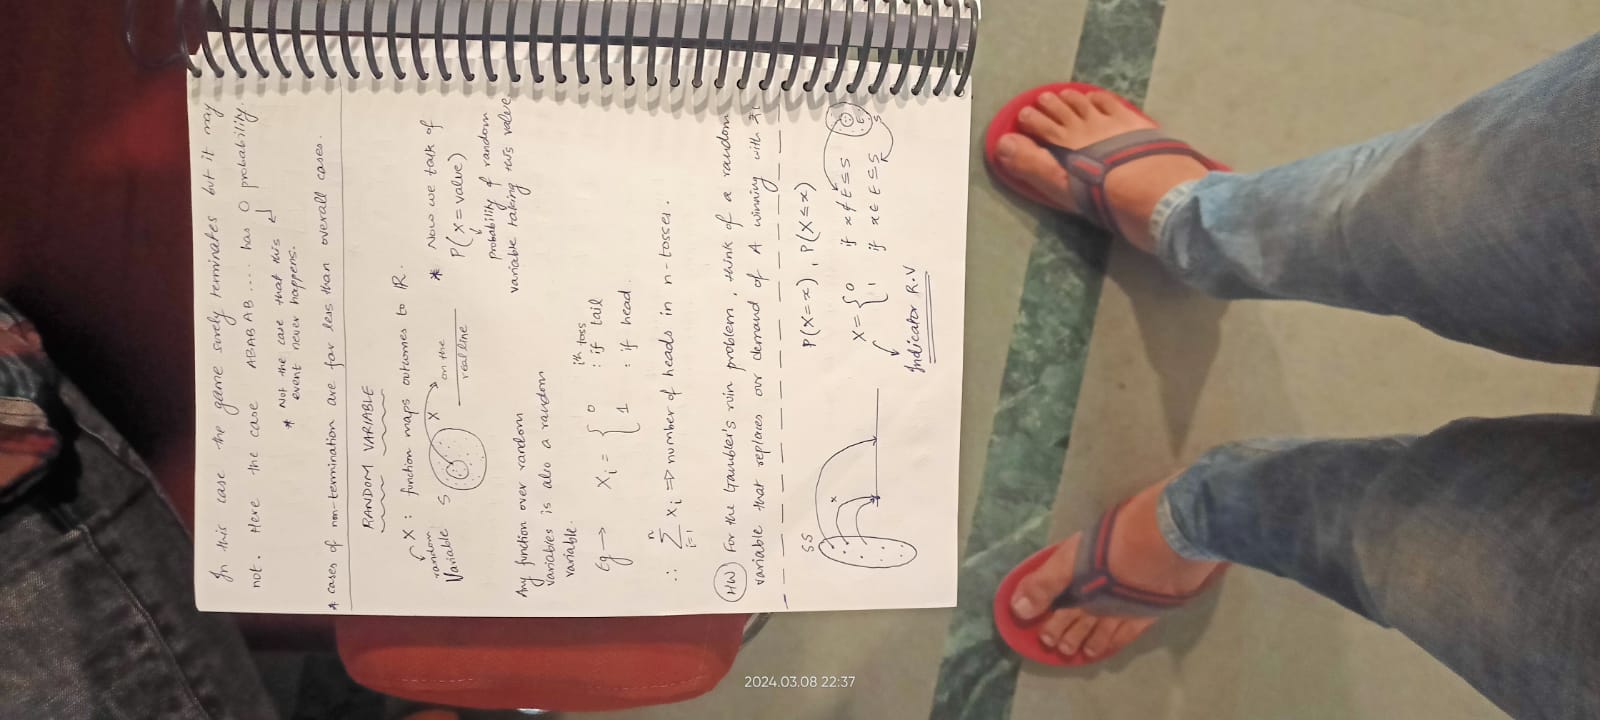 In this case the game surely terminates but it may
not. Here the case ABABAB.... has 0 probability.
* Not the case that this
event never happens.
* cases of non-termination are far less than overall cases.
RANDOM VARIABLE
X : function maps outcomes to IR.
random
Variable
S
X
on the
real line
* Now we talk of
P(X=value)
probability of random
variable taking this value
Any function over random
variables is also a random
variable.
Eg → Xi = { 0 : if ith toss tail
1 : if head.
∴ n Σ i=1 xi ⇒ number of heads in n-tosses.
HW For the Gambler's ruin problem, think of a random
variable that replaces our demand of A winning with
SS
x
P(X=x), P(X≤x)
X = { 0 if x∉E⊆S
1 if x∈E⊆S
E
S
Indicator R.V
2024.03.08 22:37